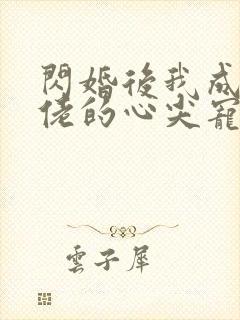 閃婚後我成
佬的心尖寵
雲子犀